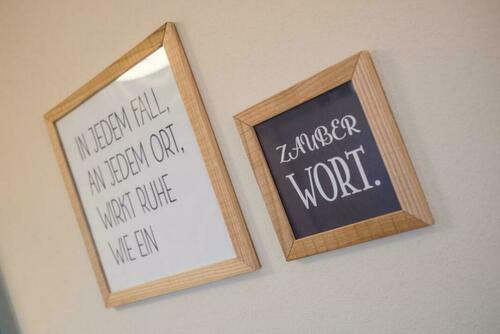 IN JEDEM FALL,
AN JEDEM ORT,
WIRKT RUHE
WIE EIN
ZAUBER
WORT.